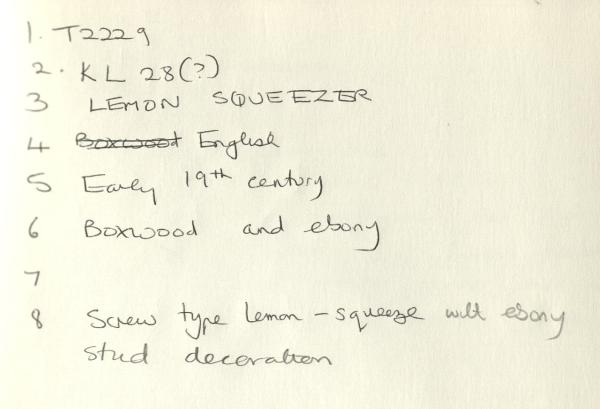 1. T2229
2. KL 28(?)
3 LEMON SQUEEZER
4 Boxwood English
5 Early 19th century
6 Boxwood and ebony
7
8 Screw type lemon-squeeze with ebony
stud decoration